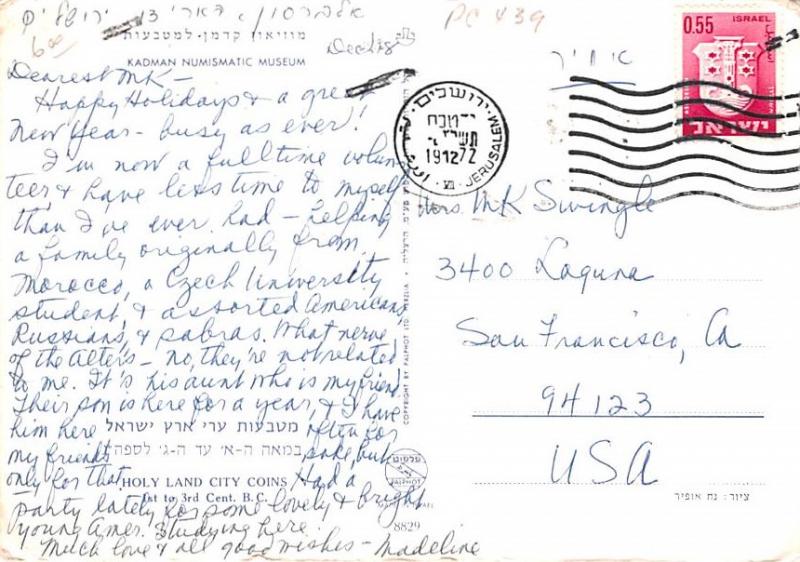 אלברסון, ד הארי 13 ירושלים
PC 439
6.00
מוזיאון קדמן-למטבעות
KADMAN NUMISMATIC MUSEUM
Dec 18
Dearest MK –
Happy Holidays & a great
New Year – busy as ever!
I'm now a fulltime volun
teer & have less time to myself
than I've ever had – helping
a family originally from
Morocco, a Czech University
student, & assorted Americans,
Russians, & sabras. What nerve
of the Alters – no, they're not related
to me. It's his aunt who is my friend.
Their son is here for a year, & I have
him here often for
my friends' sake, but
only for that. Had a
party lately for some lovely & bright
young Amer. studying here.
Much love & all good wishes – Madeline
מטבעות ערי ארץ ישראל
במאה ה-א' עד ה-ג' לספה"נ
HOLY LAND CITY COINS
1st to 3rd Cent. B.C.
COPYRIGHT BY PALPHOT LTD. HERZLIA
פלפוט
PALPHOT
8829
אויר
0.55 ISRAEL
ישראל
ירושלים
JERUSALEM
19 12 72
VII
Mrs. MK Swingle
3400 Laguna
San Francisco, Ca
94123
USA
ציור: נח אופיר